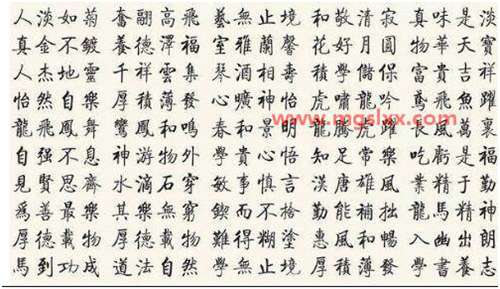 人淡如菊 奮翮高飛 藝無止境 和敬清寂 真味是淡
真金不鍍 養德澤福 室雅蘭馨 花好月圓 物華天寶
人杰地靈 千祥雲集 琴 壽 積學儲 富貴吉祥
怡然自樂 厚積薄發 心曠神怡 虎嘯龍吟 鳶飛魚躍
龍飛鳳舞 鸞鳳和鳴 春和景明 龍騰虎躍 長風萬裏
自强不息 神游物外 學貴心悟 知足常樂 吃虧是福
見賢思齊 水滴石穿 敏事慎言 漢唐雄風 業精于勤
爲善最樂 其樂無窮 鍥而不捨 勤能補拙 龍馬精神
厚德載物 厚德載物 難得糊塗 惠風和暢 入幽出朗
馬到功成 道法自然 學無止境 厚積薄發 學書養志
www.mgslxx.com